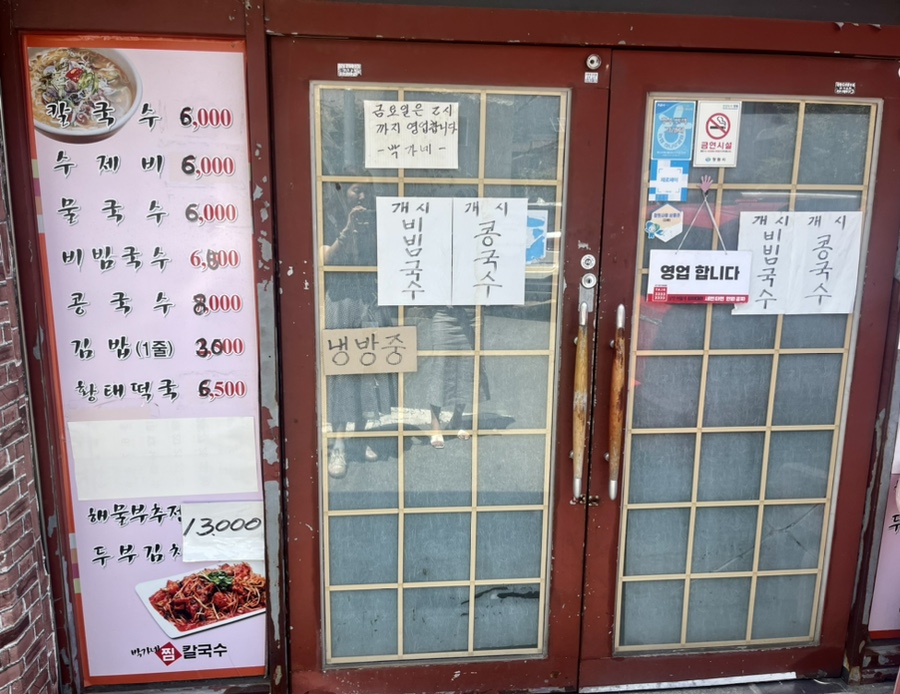 칼국수 6,000
수제비 6,000
물국수 6,000
비빔국수 6,500
콩국수 8,000
김밥(1줄) 3,000
황태떡국 6,500
해물부추전
13.000
두부김치
박가네 찜 칼국수
금요일은 2시
까지 영업합니다
-박가네-
개시
비빔국수
개시
콩국수
냉방중
금연시설
영업 합니다
개시
비빔국수
개시
콩국수